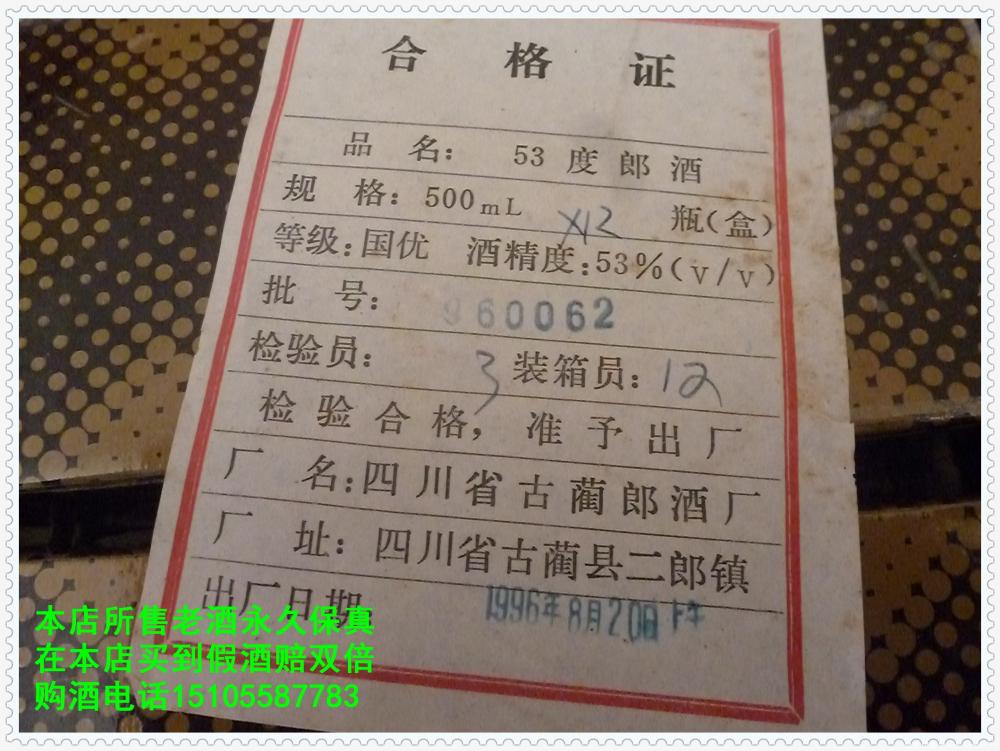 合格证
品 名： 53 度 郎 酒
规 格：500mL X12 瓶(盒)
等级：国优 酒精度：53%(v/v)
批 号： 960062
检验员： 3 装箱员：12
检 验 合 格，准 予 出 厂
厂 名：四川省古蔺郎酒厂
厂 址：四川省古蔺县二郎镇
出厂日期 1996年8月20日 下午
本店所售老酒永久保真
在本店买到假酒赔双倍
购酒电话15105587783